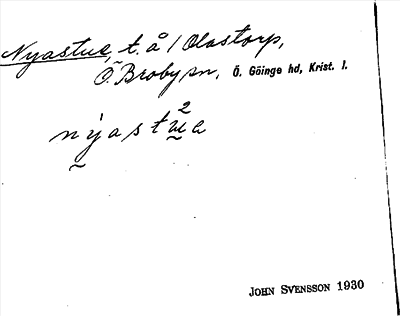 Nyastue, t. å / Olastorp,
Ö. Broby sn, Ö. Göinge hd, Krist. l.
nyast²ua
JOHN SVENSSON 1930